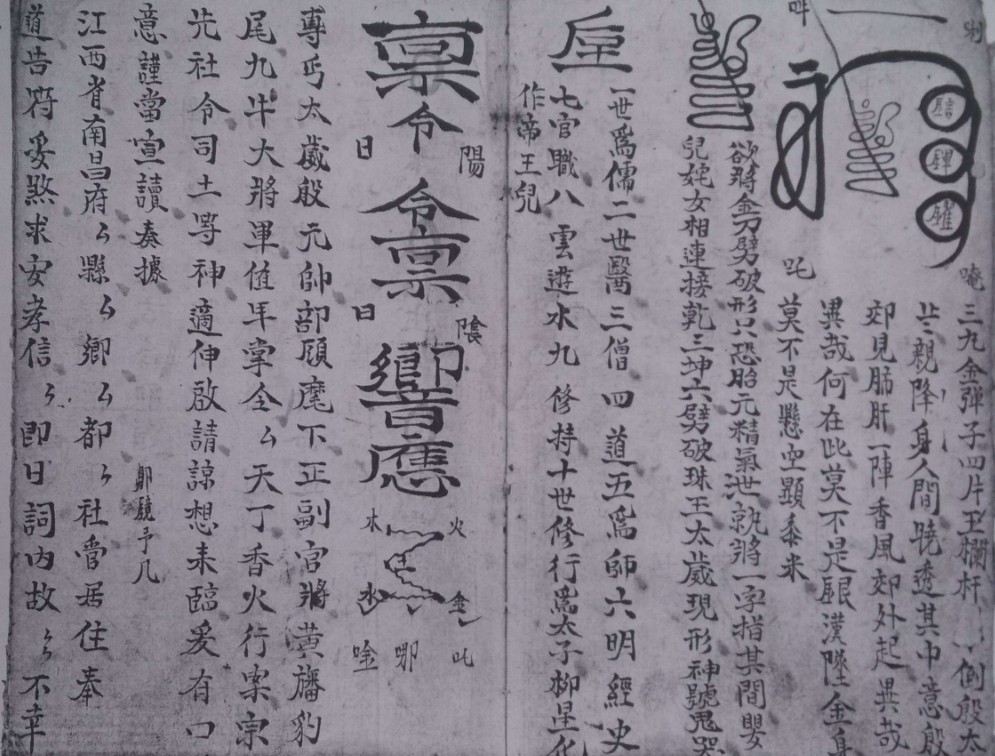 唵
三九金彈子四片玉欄杆
倒殷太
親降身人間曉透其中意殷
郊見肺肝一陣香風郊外起異哉
異哉何在此莫不是
漢墜金
莫不是懸空顯黍米
吒
欲將金刀劈破形只恐胎元精氣泄執將一字指其間嬰
兒姹女相連接乾三坤六劈破珠玉太歲現形神號鬼哭
一世爲儒二世醫三僧四道五爲師六明經史
七官職八雲遊水九修持十世修行爲太子柳星化
作帝王兒
陽
日
稟令
令稟
陰
日
響應
火
木
金
水
此
哪
唫
專丐太歲殷元帥部願麾下正副宮將黃旛豹
尾九牛大將軍值年掌令厶天丁香火行案宗
先社令司土等神適伸啟請諒想來臨爰有口
意謹當宣讀奏據
江西省南昌府厶縣厶鄉厶都
社當居住奉
道告符妥煞求安孝信
即日詞內故
不幸